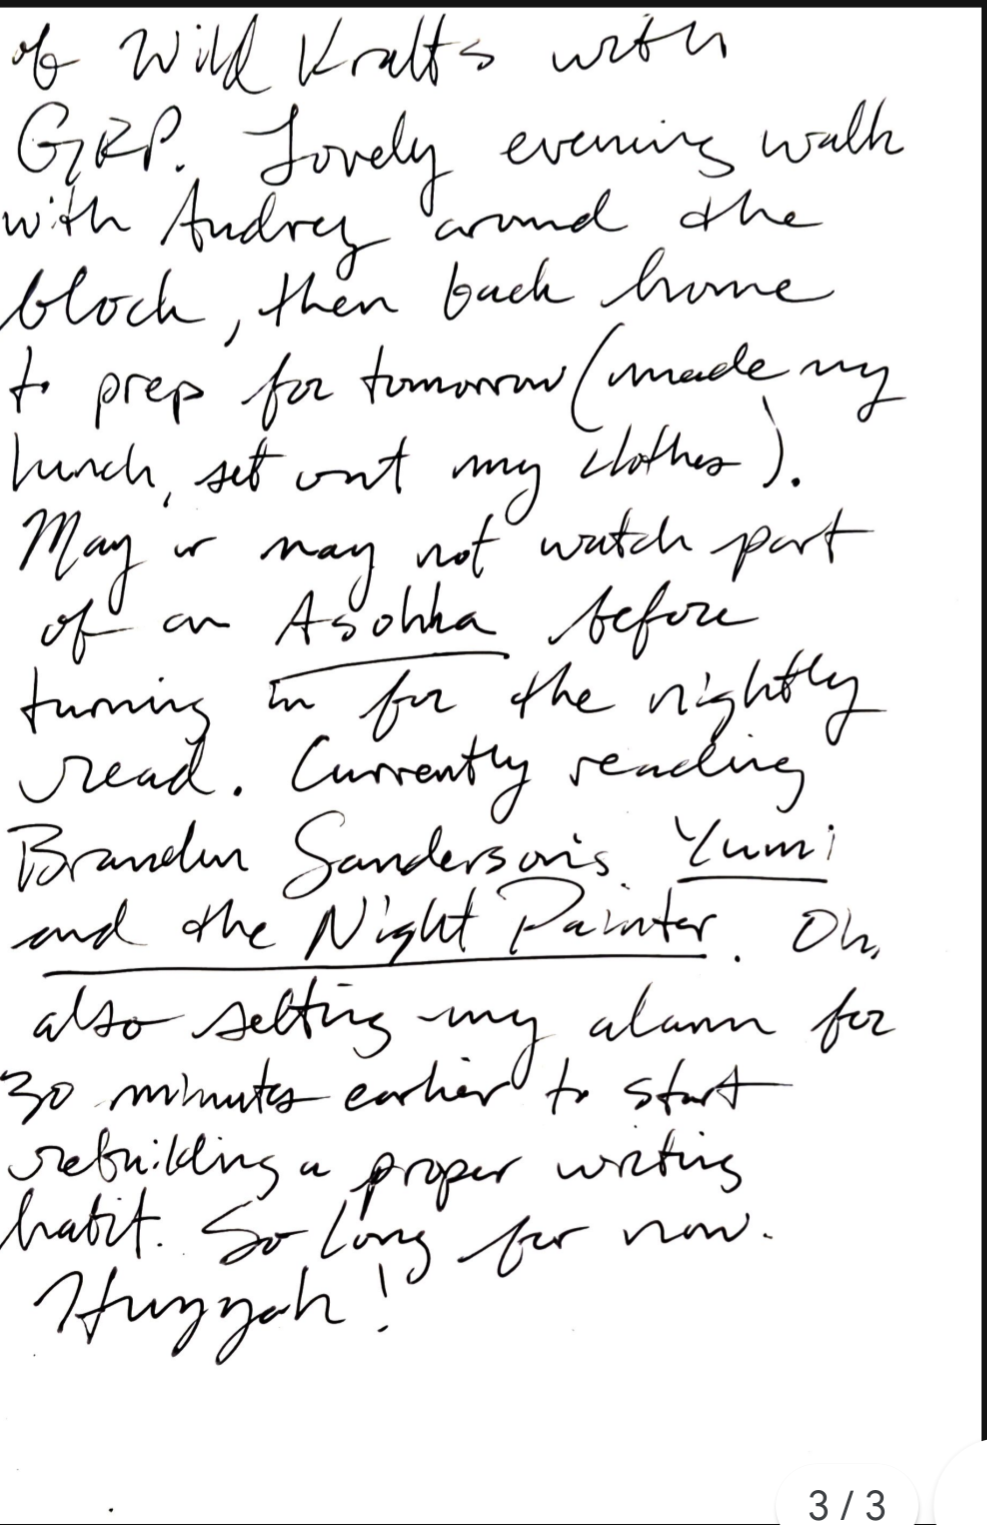 of Wild Kratts with
GRP. Lovely evening walk
with Audrey around the
block, then back home
to prep for tomorrow (made my
lunch, set out my clothes).
May or may not watch part
of an Asohka before
turning in for the nightly
read. Currently reading
Brandon Sanderson's Yumi
and the Night Painter. Oh,
also setting my alarm for
30 minutes earlier to start
rebuilding a proper writing
habit. So long for now.
Huzzah!
3 / 3